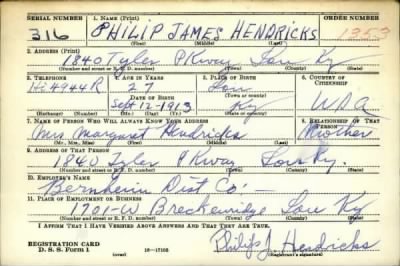 SERIAL NUMBER 1. NAME (Print) ORDER NUMBER
316 PHILIP JAMES HENDRICKS
(First) (Middle) (Last)
2. ADDRESS (Print)
1840 Tyler PKway Lou Ky
(Number and street or R. F. D. number) (Town) (County) (State)
3. TELEPHONE 4. AGE IN YEARS 5. PLACE OF BIRTH 6. COUNTRY OF CITIZENSHIP
Hi 4944R 27 Lou
DATE OF BIRTH (Town or county)
Sept 12-1913 Ky USA
(Exchange) (Number) (Mo.) (Day) (Yr.) (State or country)
7. NAME OF PERSON WHO WILL ALWAYS KNOW YOUR ADDRESS 8. RELATIONSHIP OF THAT PERSON
Mrs Margaret Hendricks Mother
(Mr., Mrs., Miss) (First) (Middle) (Last)
9. ADDRESS OF THAT PERSON
1840 Tyler PKway Lou Ky.
(Number and street or R. F. D. number) (Town) (County) (State)
10. EMPLOYER'S NAME
Bernheim Dist Co. -
11. PLACE OF EMPLOYMENT OR BUSINESS
1701-W Breckenridge Lou Ky
(Number and street or R. F. D. number) (Town) (County) (State)
I AFFIRM THAT I HAVE VERIFIED ABOVE ANSWERS AND THAT THEY ARE TRUE.
REGISTRATION CARD
D. S. S. Form 1 16-17105 Philip J Hendricks
(Registrant's signature)